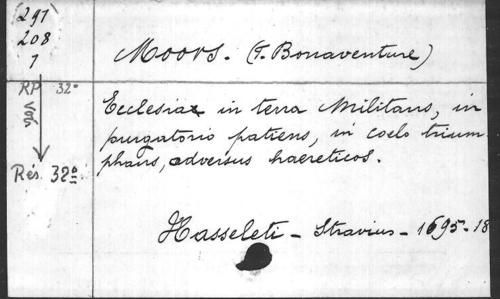 (297
208
1
Moors. (F. Bonaventure)
RP 32°
Ecclesiae in terra Militans, in
purgatorio patiens, in coelo trium-
phans, adversus haereticos.
Rés. 32°
Hasseleti - Stravius - 1695-18